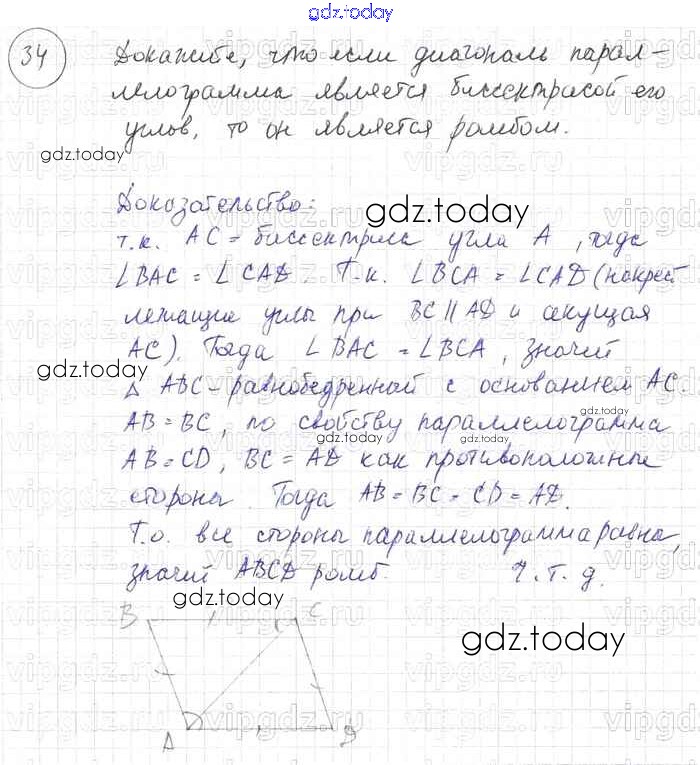 gdz.today
34
Докажите, что если диагональ парал-
лелограмма является биссектрисой его
углов, то он является ромбом.
gdz.today
Доказательство:
gdz.today
т.к. AC = биссектриса угла A, тогда
∠BAC = ∠CAD. Т.к. ∠BCA = ∠CAD (накрест
лежащие углы при BC ∥ AD и секущая
AC). Тогда ∠BAC = ∠BCA, значит
gdz.today
Δ ABC - равнобедренной с основанием AC.
gdz.today
AB = BC, по свойству параллелограмма
gdz.today
gdz.today
AB = CD, BC = AD как противоположные
стороны. Тогда AB = BC = CD = AD.
Т.о. все стороны параллелограмма равны,
значит ABCD ромб. Ч.т.д.
gdz.today
B C
gdz.today
A D